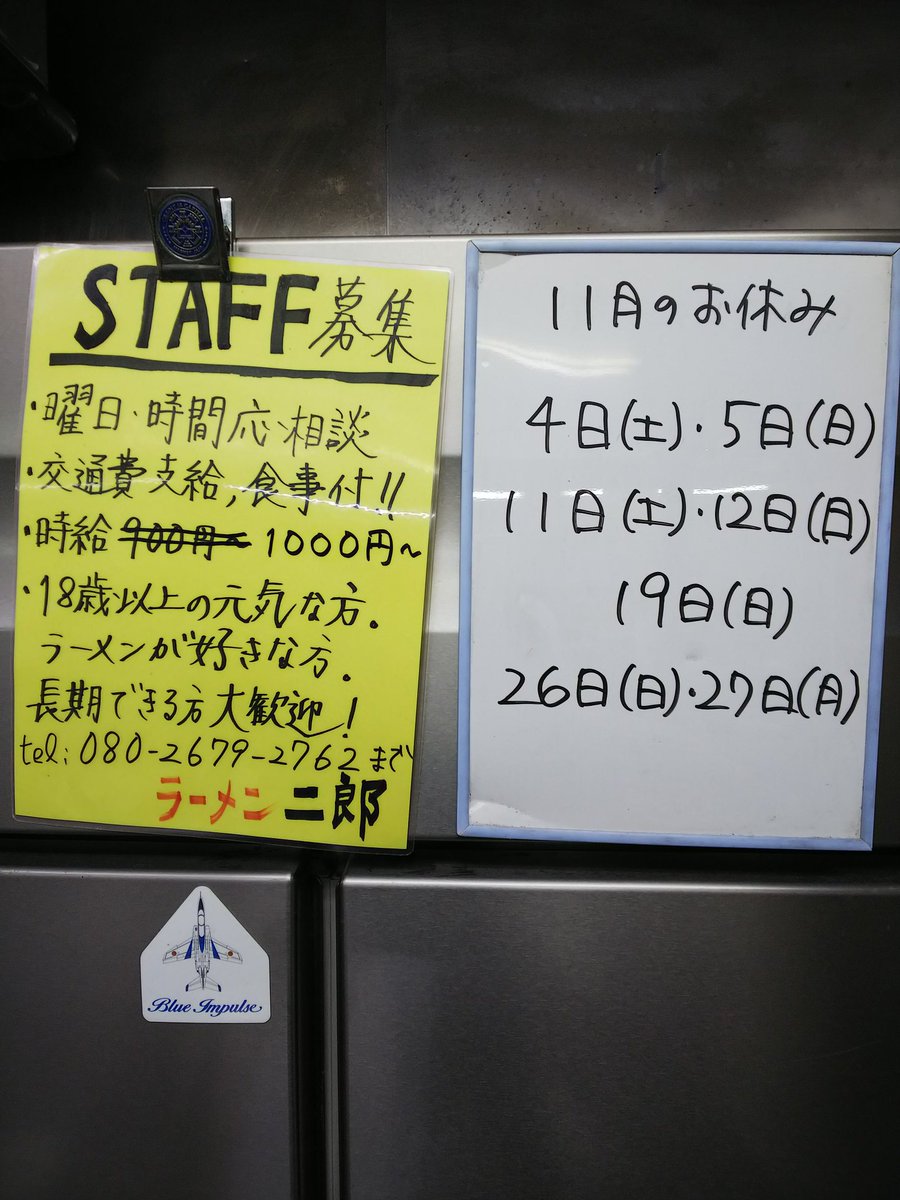 STAFF募集
・曜日・時間応相談
・交通費支給,食事付!!
・時給 900円〜 1000円〜
・18歳以上の元気な方.
ラーメンが好きな方.
長期できる方大歓迎!
tel:080-2679-2762まで
ラーメン二郎
11月のお休み
4日(土)・5日(日)
11日(土)・12日(日)
19日(日)
26日(日)・27日(月)
Blue Impulse